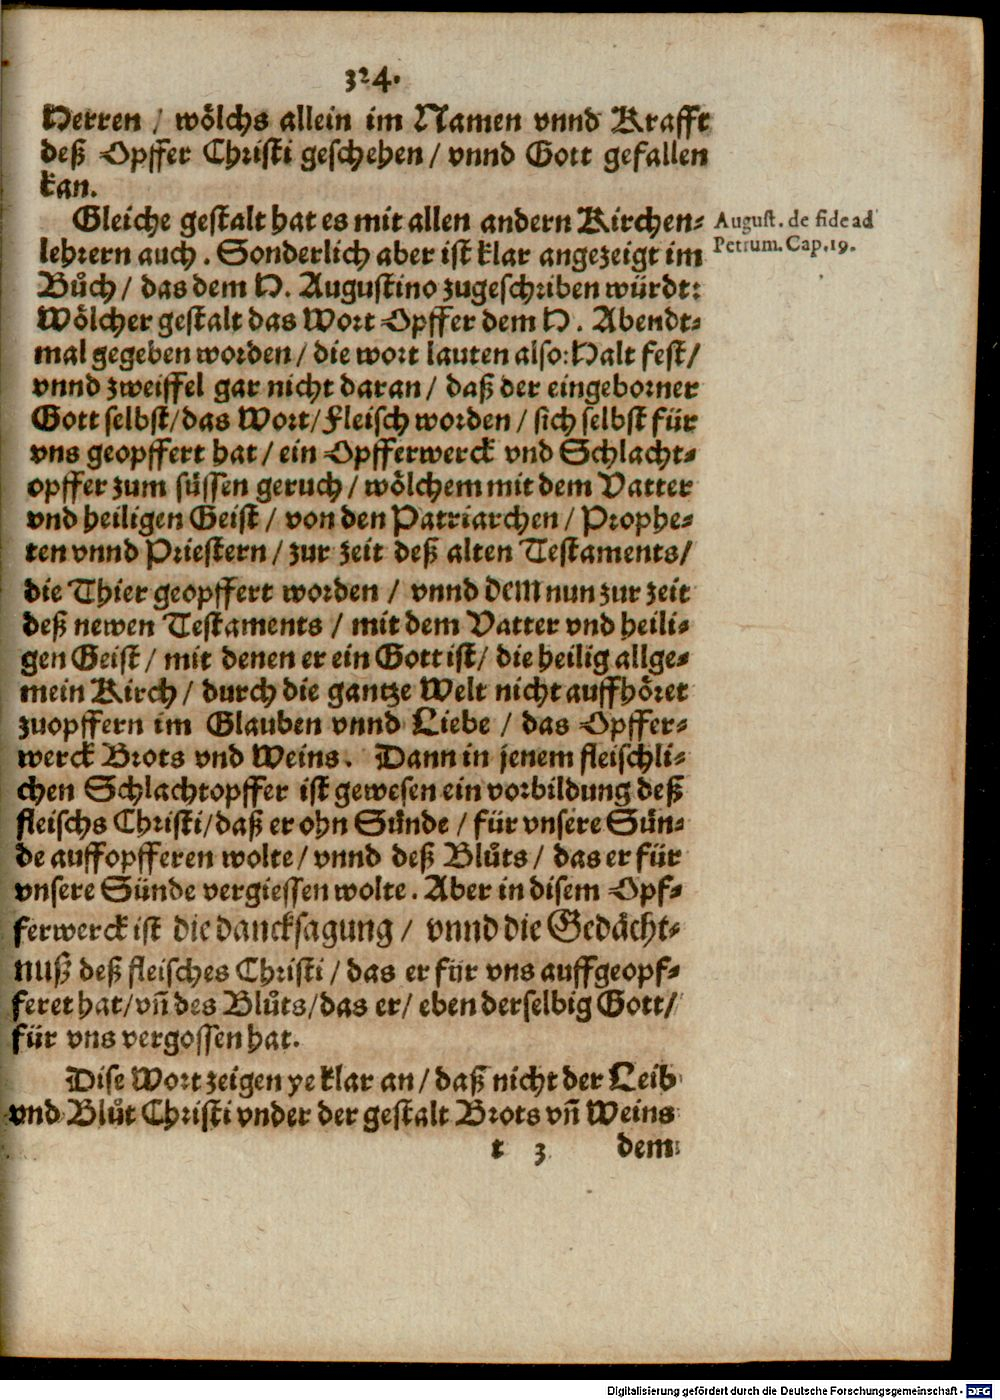 324.
Herren / wölchs allein im Namen vnnd Krafft
deß Opffer Christi geschehen / vnnd Gott gefallen
kan.
Gleiche gestalt hat es mit allen andern Kirchen-
lehrern auch. Sonderlich aber ist klar angezeigt im
Bůch / das dem H. Augustino zugeschriben würdt:
Wölcher gestalt das Wort Opffer dem H. Abendt-
mal gegeben worden / die wort lauten also: Halt fest /
vnnd zweiffel gar nicht daran / daß der eingeborner
Gott selbst / das Wort / Fleisch worden / sich selbst für
vns geopffert hat / ein Opfferwerck vnd Schlacht-
opffer zum süssen geruch / wölchem mit dem Vatter
vnd heiligen Geist / von den Patriarchen / Prophe-
ten vnnd Priestern / zur zeit deß alten Testaments /
die Thier geopffert worden / vnnd dem nun zur zeit
deß newen Testaments / mit dem Vatter vnd heili-
gen Geist / mit denen er ein Gott ist / die heilig allge-
mein Kirch / durch die gantze Welt nicht auffhöret
zuopffern im Glauben vnnd Liebe / das Opffer-
werck Brots vnd Weins. Dann in jenem fleischli-
chen Schlachtopffer ist gewesen ein vorbildung deß
fleischs Christi / daß er ohn Sünde / für vnsere Sün-
de auffopfferen wolte / vnnd deß Blůts / das er für
vnsere Sünde vergiessen wolte. Aber in disem Opf-
ferwerck ist die dancksagung / vnnd die Gedächt-
nuß deß fleisches Christi / das er für vns auffgeopf-
feret hat / vn̄ des Blůts / das er / eben derselbig Gott /
für vns vergossen hat.
Dise Wort zeigen ye klar an / daß nicht der Leib
vnd Blůt Christi vnder der gestalt Brots vn̄ Weins
t 3 dem
August. de fide ad
Petrum. Cap. 19.
Digitalisierung gefördert durch die Deutsche Forschungsgemeinschaft - DFG